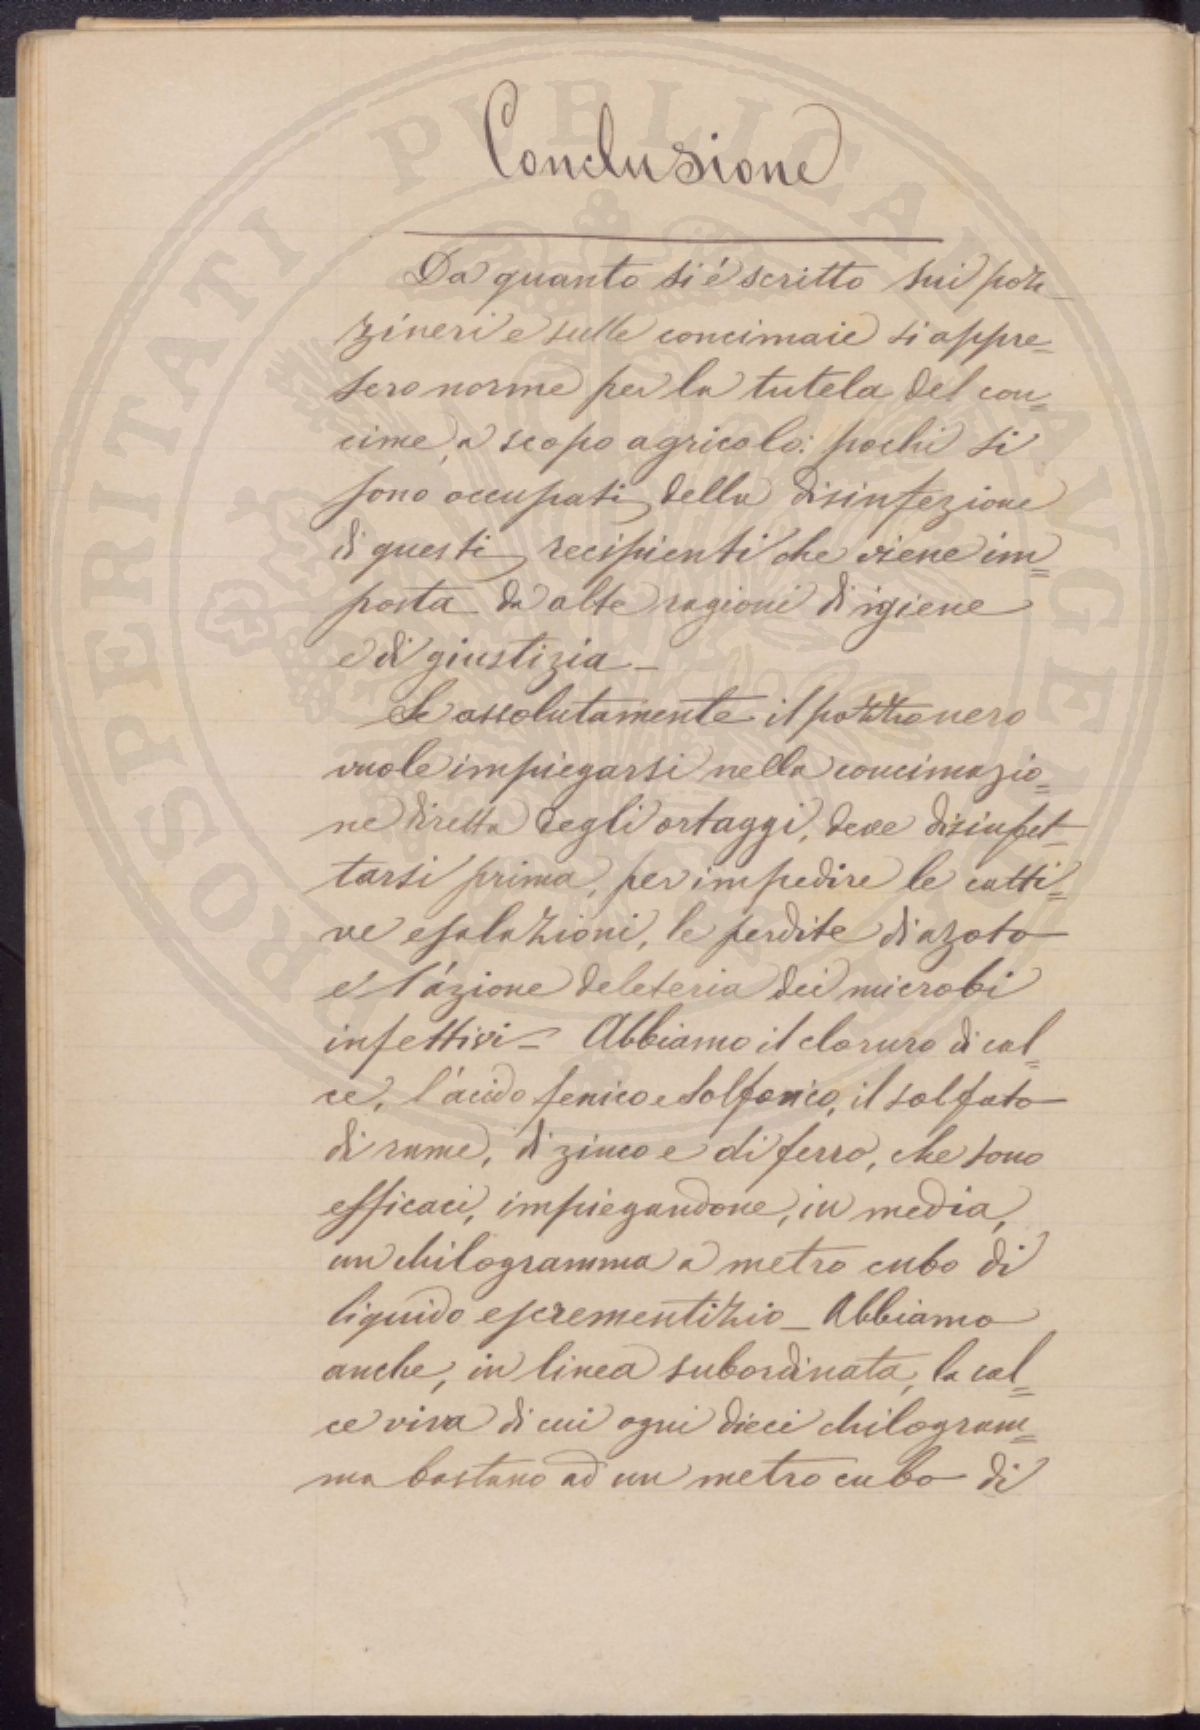 Conclusione
Da quanto si è scritto sui poz-
zineri e sulle concimaie si appre=
sero norme per la tutela del con=
cime, a scopo agricolo: pochi si
sono occupati della disinfezione
di questi recipienti che viene im=
posta da alte ragioni di igiene
e di giustizia_
Se assolutamente il pozzo nero
vuole impiegarsi nella concimazio=
ne diretta degli ortaggi, deve disinfet=
tarsi prima, per impedire le catti=
ve esalazioni, le perdite di azoto
e l'azione deleteria dei microbi
infettivi_ Abbiamo il cloruro di cal=
ce, l'acido fenico e solforico, il solfato
di rame, di zinco e di ferro, che sono
efficaci, impiegandone, in media,
un chilogramma a metro cubo di
liquido escrementizio_ Abbiamo
anche, in linea subordinata, la cal=
ce viva di cui ogni dieci chilogram=
ma bastano ad un metro cubo di
PROSPERITATI PVBLICAE AVGENDAE